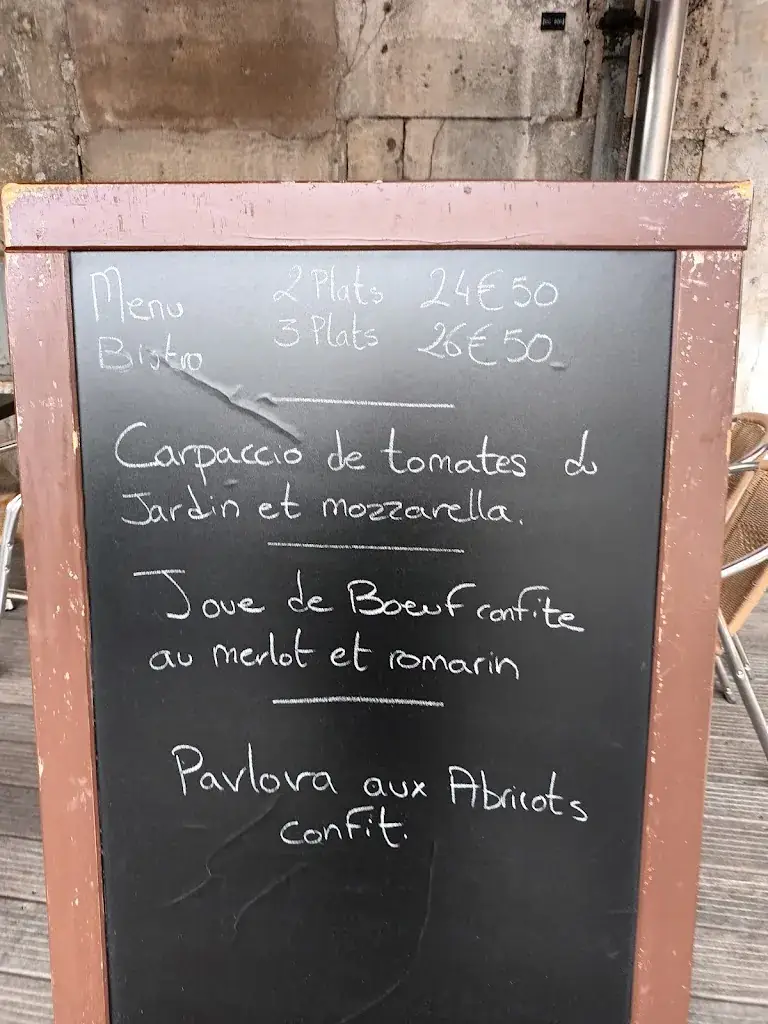 Menu 2 Plats 24€50
Bistro 3 Plats 26€50
Carpaccio de tomates du
Jardin et mozzarella.
Joue de Boeuf confite
au merlot et romarin
Pavlova aux Abricots
confit.